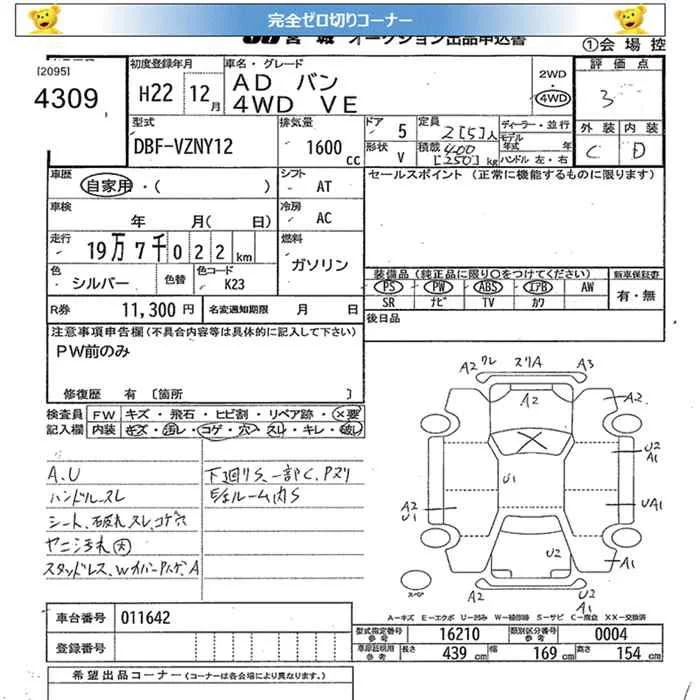 完全ゼロ切りコーナー
JU宮城 オークション出品申込書
①会場控
[2095]
4309
初度登録年月
H22 12月
車名・グレード
AD バン
4WD VE
2WD
・
4WD
評価点
3
外装 内装
C D
型式
DBF-VZNY12
排気量
1600cc
ドア 5
形状 V
定員 2[5]人
積載 400[250]kg
ディーラー・並行
モデル年式 年
ハンドル 左・右
車歴
自家用・( )
シフト
AT
セールスポイント (正常に機能するものに限ります)
車検
年 月( 日)
冷房
AC
走行
19万7千022km
燃料
ガソリン
色
シルバー
色替
色コード
K23
装備品(純正品に限り○をつけてください)
新車保証書
PS PW ABS エアB AW
SR ナビ TV カワ
有・無
R券 11,300円
名変通知期限 月 日
後日品
注意事項申告欄(不具合内容等は具体的に記入して下さい)
PW前のみ
修復歴 有〔箇所 〕
検査員 FW キズ・飛石・ヒビ割・リペア跡・×要
記入欄 内装 キズ・汚レ・コゲ・穴・スレ・キレ・破レ
A.U
ハンドルスレ
シート、破れ スレ、コゲ穴
ヤニ汚れ 内
下廻りS、一部C、Pズリ
ルーム内S
A2 ワレ スリA A3
A2
A2
U2
A1
U1
UA1
A2
U1
U2
A1
A2
U2
A1
スペア
A-キズ E-エクボ U-凹み W-補修跡 S-サビ C-腐食 XX-交換済
車台番号 011642
登録番号
型式指定番号 参考 16210
類別区分番号 参考 0004
車庫証明用 参考 長さ 439cm 幅 169cm 高さ 154cm
希望出品コーナー(コーナーは各会場により異なります。)